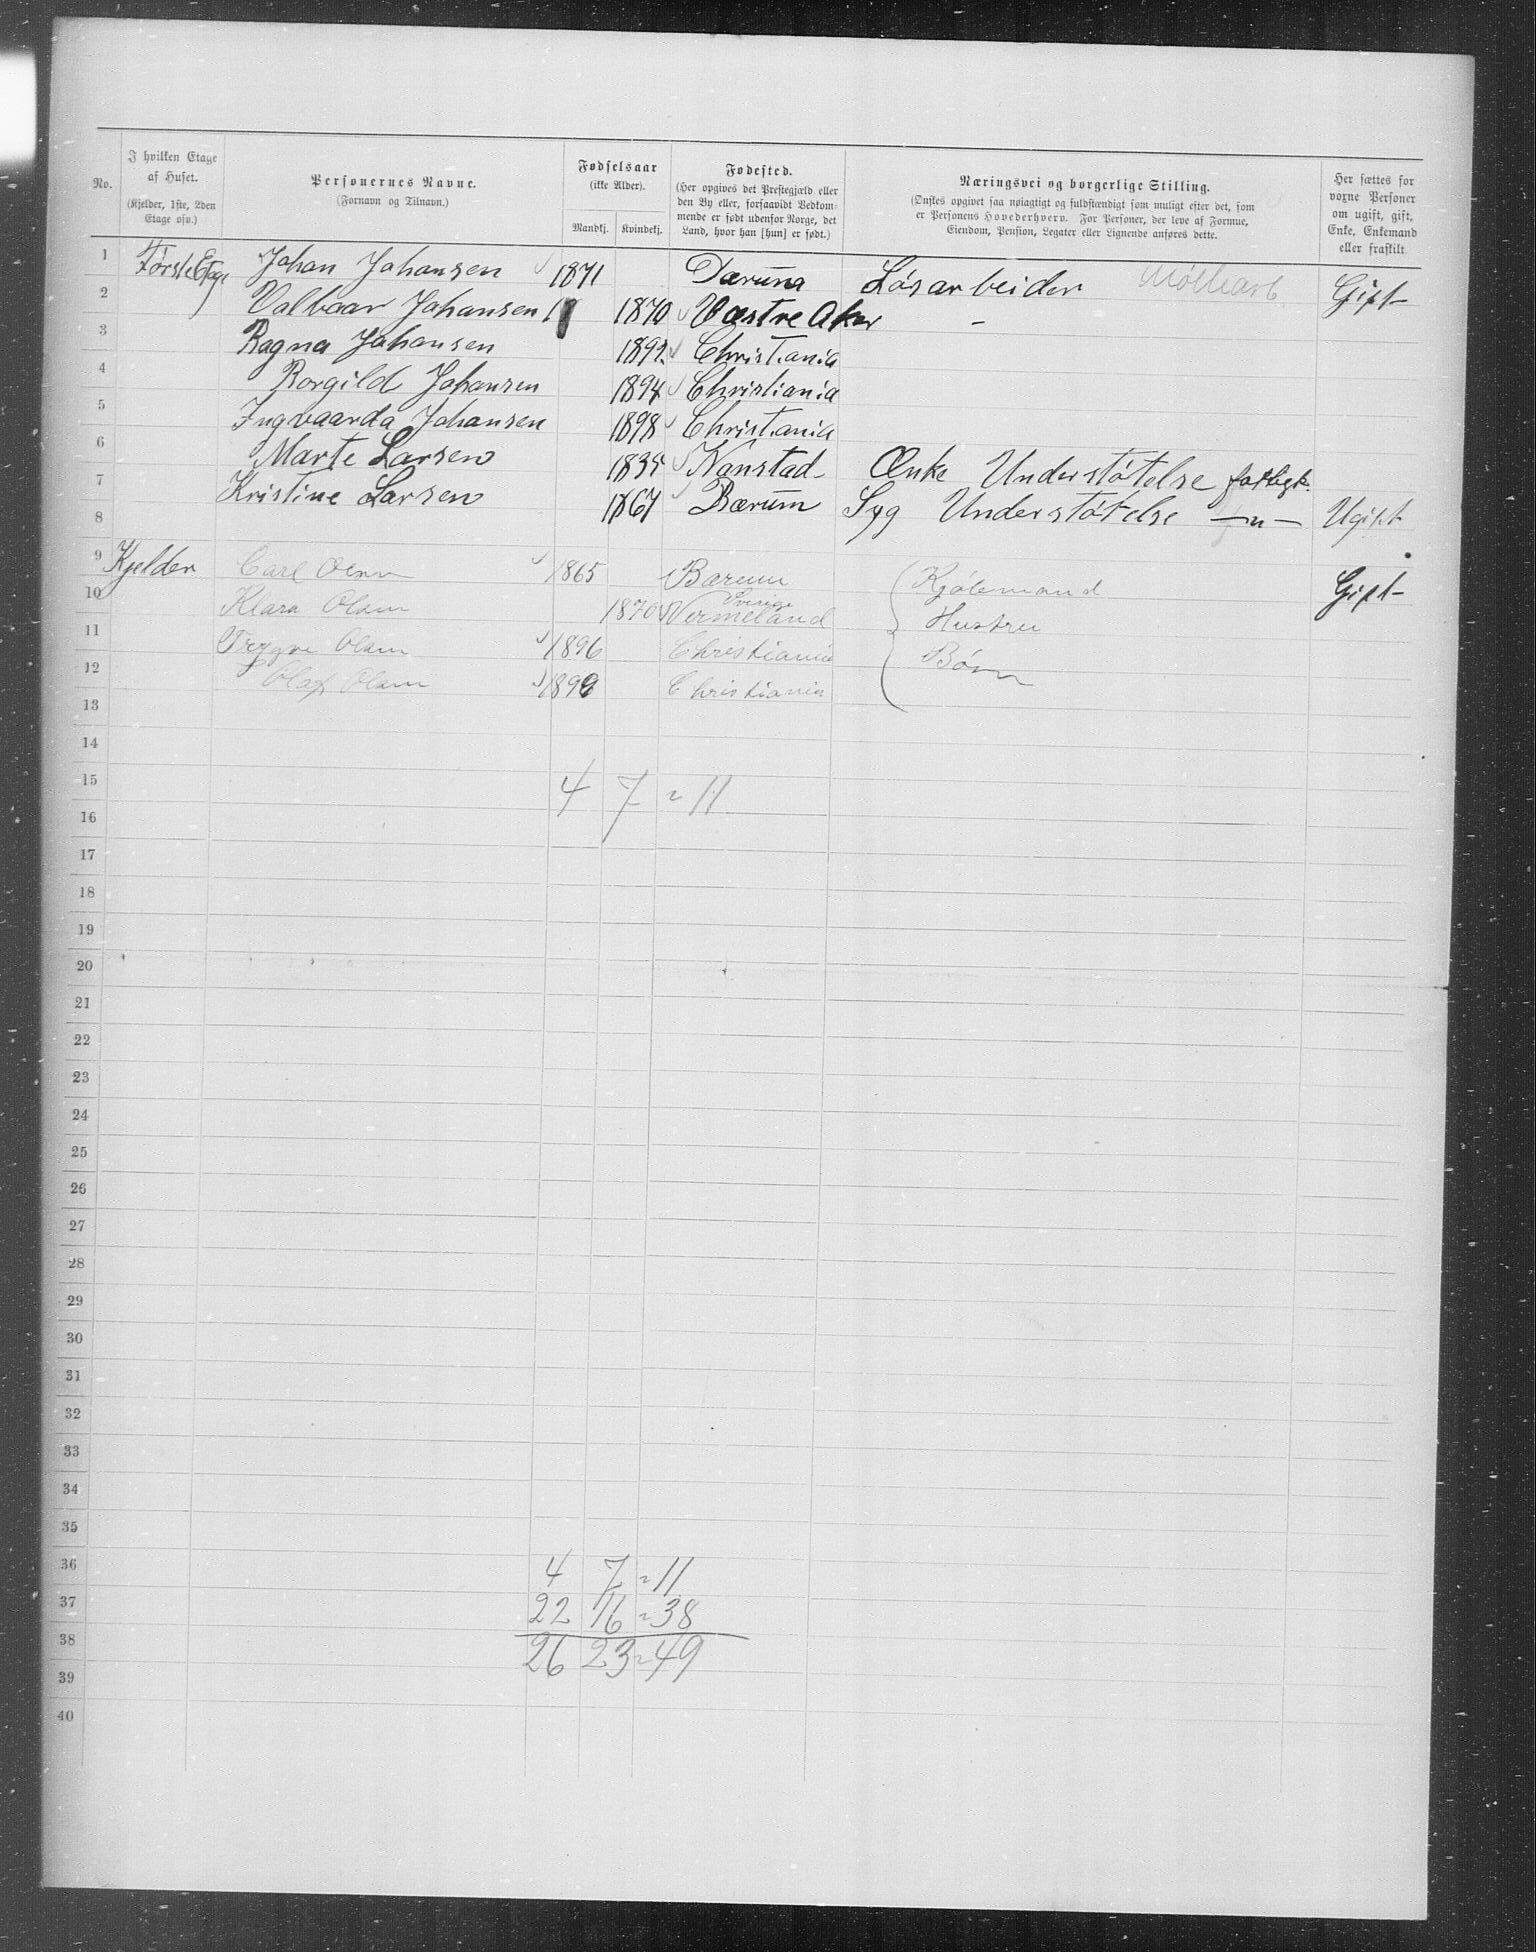 No.
I hvilken Etage af Huset.
(Kjelder, 1ste, 2den Etage osv.)
Personernes Navne.
(Fornavn og Tilnavn.)
Fødselsaar
(ikke Alder).
Mandkj.
Kvindekj.
Fødested.
(Her opgives det Prestegjæld eller den By eller, forsaavidt Vedkommende er født udenfor Norge, det Land, hvor han [hun] er født.)
Næringsvei og borgerlige Stilling.
(Ønskes opgivet saa nøiagtigt og fuldstændigt som muligt efter det, som er Personens Hovederhverv. For Personer, der leve af Formue, Eiendom, Pension, Legater eller Lignende anføres dette.
Her sættes for voxne Personer om ugift, gift, Enke, Enkemand eller fraskilt
1 Første Etage Johan Johansen 1871 Løsarbeider Møllearb Gift
2 Valbaar Johansen 1870 Væstre Aker -
3 Ragna Johansen 1892 Christiania
4 Borgild Johansen 1894 Christiania
5 Ingvaarda Johansen 1898 Christiania
6 Marte Larsen 1835 Nanstad Ænke Understøtelse fattigk.
7 Kristine Larsen 1867 Bærum Syg Understøtelse —„— Ugift
8
9 Kjelder Carl Olsen 1865 Bærum Kjølemand Gift
10 Klara Olsen 1870 Vermeland Sverige Hustru
11 Trygve Olsen 1896 Christiania Børn
12 Olaf Olsen 1899 Christiania
13
14
15 4 7 = 11
16
17
18
19
20
21
22
23
24
25
26
27
28
29
30
31
32
33
34
35
36 4 7 = 11
37 22 16 = 38
38 26 23 = 49
39
40